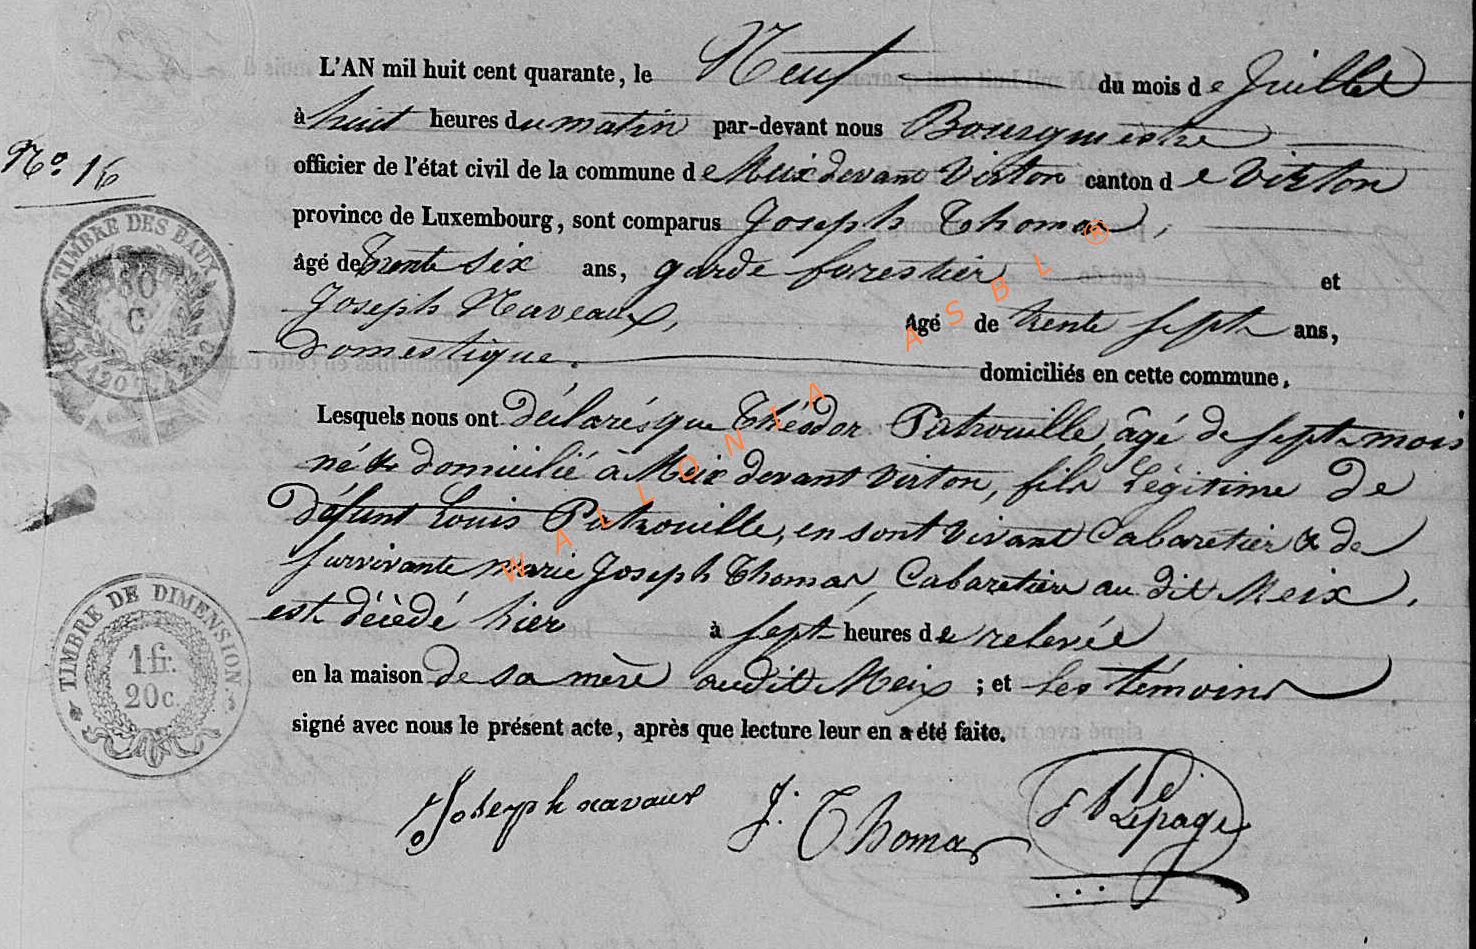 L'AN mil huit cent quarante, le Neuf du mois de Juillet
à huit heures du matin par-devant nous Bourgmestre
N.º 16
officier de l'état civil de la commune de Meix devant Virton canton de Virton
province de Luxembourg, sont comparus Joseph Thomas,
âgé de trente six ans, garde forestier et
Joseph Naveaux, Agé de trente sept ans,
Domestique. domiciliés en cette commune.
Lesquels nous ont Déclarés que Théodor Patrouille, âgé de sept mois
né & domicilié à Meix devant Virton, fils Légitime de
Défunt Louis Patrouille, en sont vivant Cabaretier & de
survivante marie Joseph Thomas, Cabaretière au dit Meix.
est décèdé hier à sept heures de relevée
en la maison de sa mère audit Meix ; et les témoins
signé avec nous le présent acte, après que lecture leur en a été faite.
Joseph navaux J. Thomas Lepage
TIMBRE DES BAUX
60
C
TIMBRE DE DIMENSION.
1 fr.
20 c.
WALLONIA ASBL ®